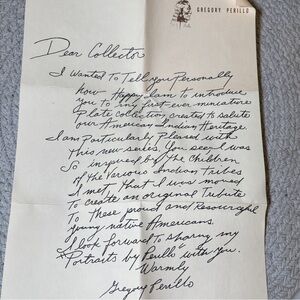 GREGORY PERILLO
Dear Collector
I wanted to tell you Personally
how Happy I am to introduce
you To my first-ever miniature
Plate collection, created To salute
our American Indian Heritage.
I am Particularly Pleased with
this new series. You see, I was
so inspired by the Children
of the Various Indian Tribes
I met, that I was moved
To create an original Tribute
To these proud and Resourceful
young native Americans.
I look forward To sharing my
"Portraits by Perillo" with you.
Warmly
Gregory Perillo